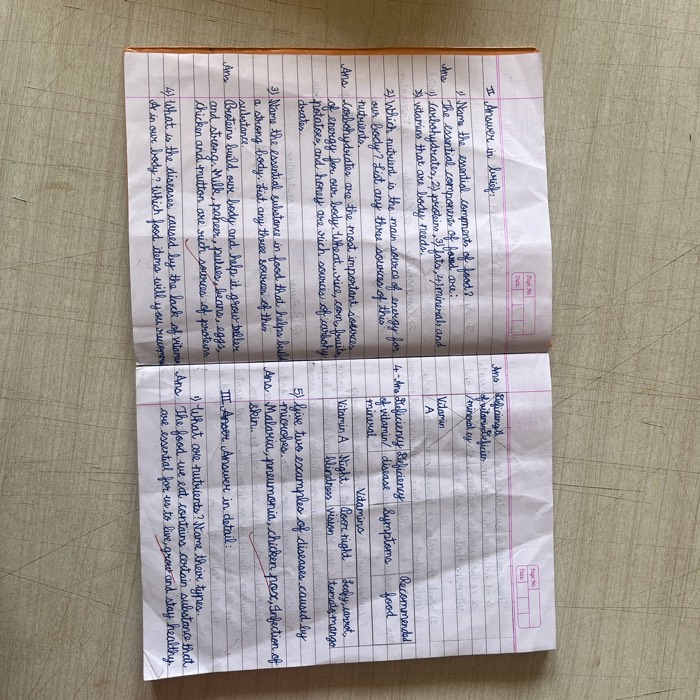 Page No.
Date
II Answer in brief:
1) Name the essential components of food?
Ans The essential components of food are:
1) carbohydrates, 2) proteins, 3) fats, 4) minerals and
5) vitamins that are body needs.
2) Which nutrient is the main source of energy for
our body? List any three sources of this
nutrients.
Ans carbohydrates are the most important sources
of energy for our body. Wheat, rice, corn, fruits,
potatoes and honey are rich sources of carbohy-
drates.
3) Name the essential substance in food that helps build
a strong body. List any three sources of this
substance.
Ans Proteins build our body and help it grow taller
and strong. Milk, paneer, pulses, beans, eggs,
chicken and mutton are rich sources of proteins.
4) What is the diseases caused by the lack of vitamin
A in our body? Which food items will you recomm
Page No.
Date
Ans Deficiency
of vitamin
/mineral
Vitamin
A
4. Ans Deficiency of vitamin/ mineral Deficiency disease Symptoms Recommended food
Vitamins
Vitamin A Night blindness Poor night vision Leafy, carrot, tomato, mango
5) Give two examples of diseases caused by
microbes.
Ans Malaria, pneumonia, chicken pox, Infection of
skin.
III Answer in detail:
1) What are nutrients? Name their types.
Ans The food we eat contains certain substance that
are essential for us to live, grow and stay healthy